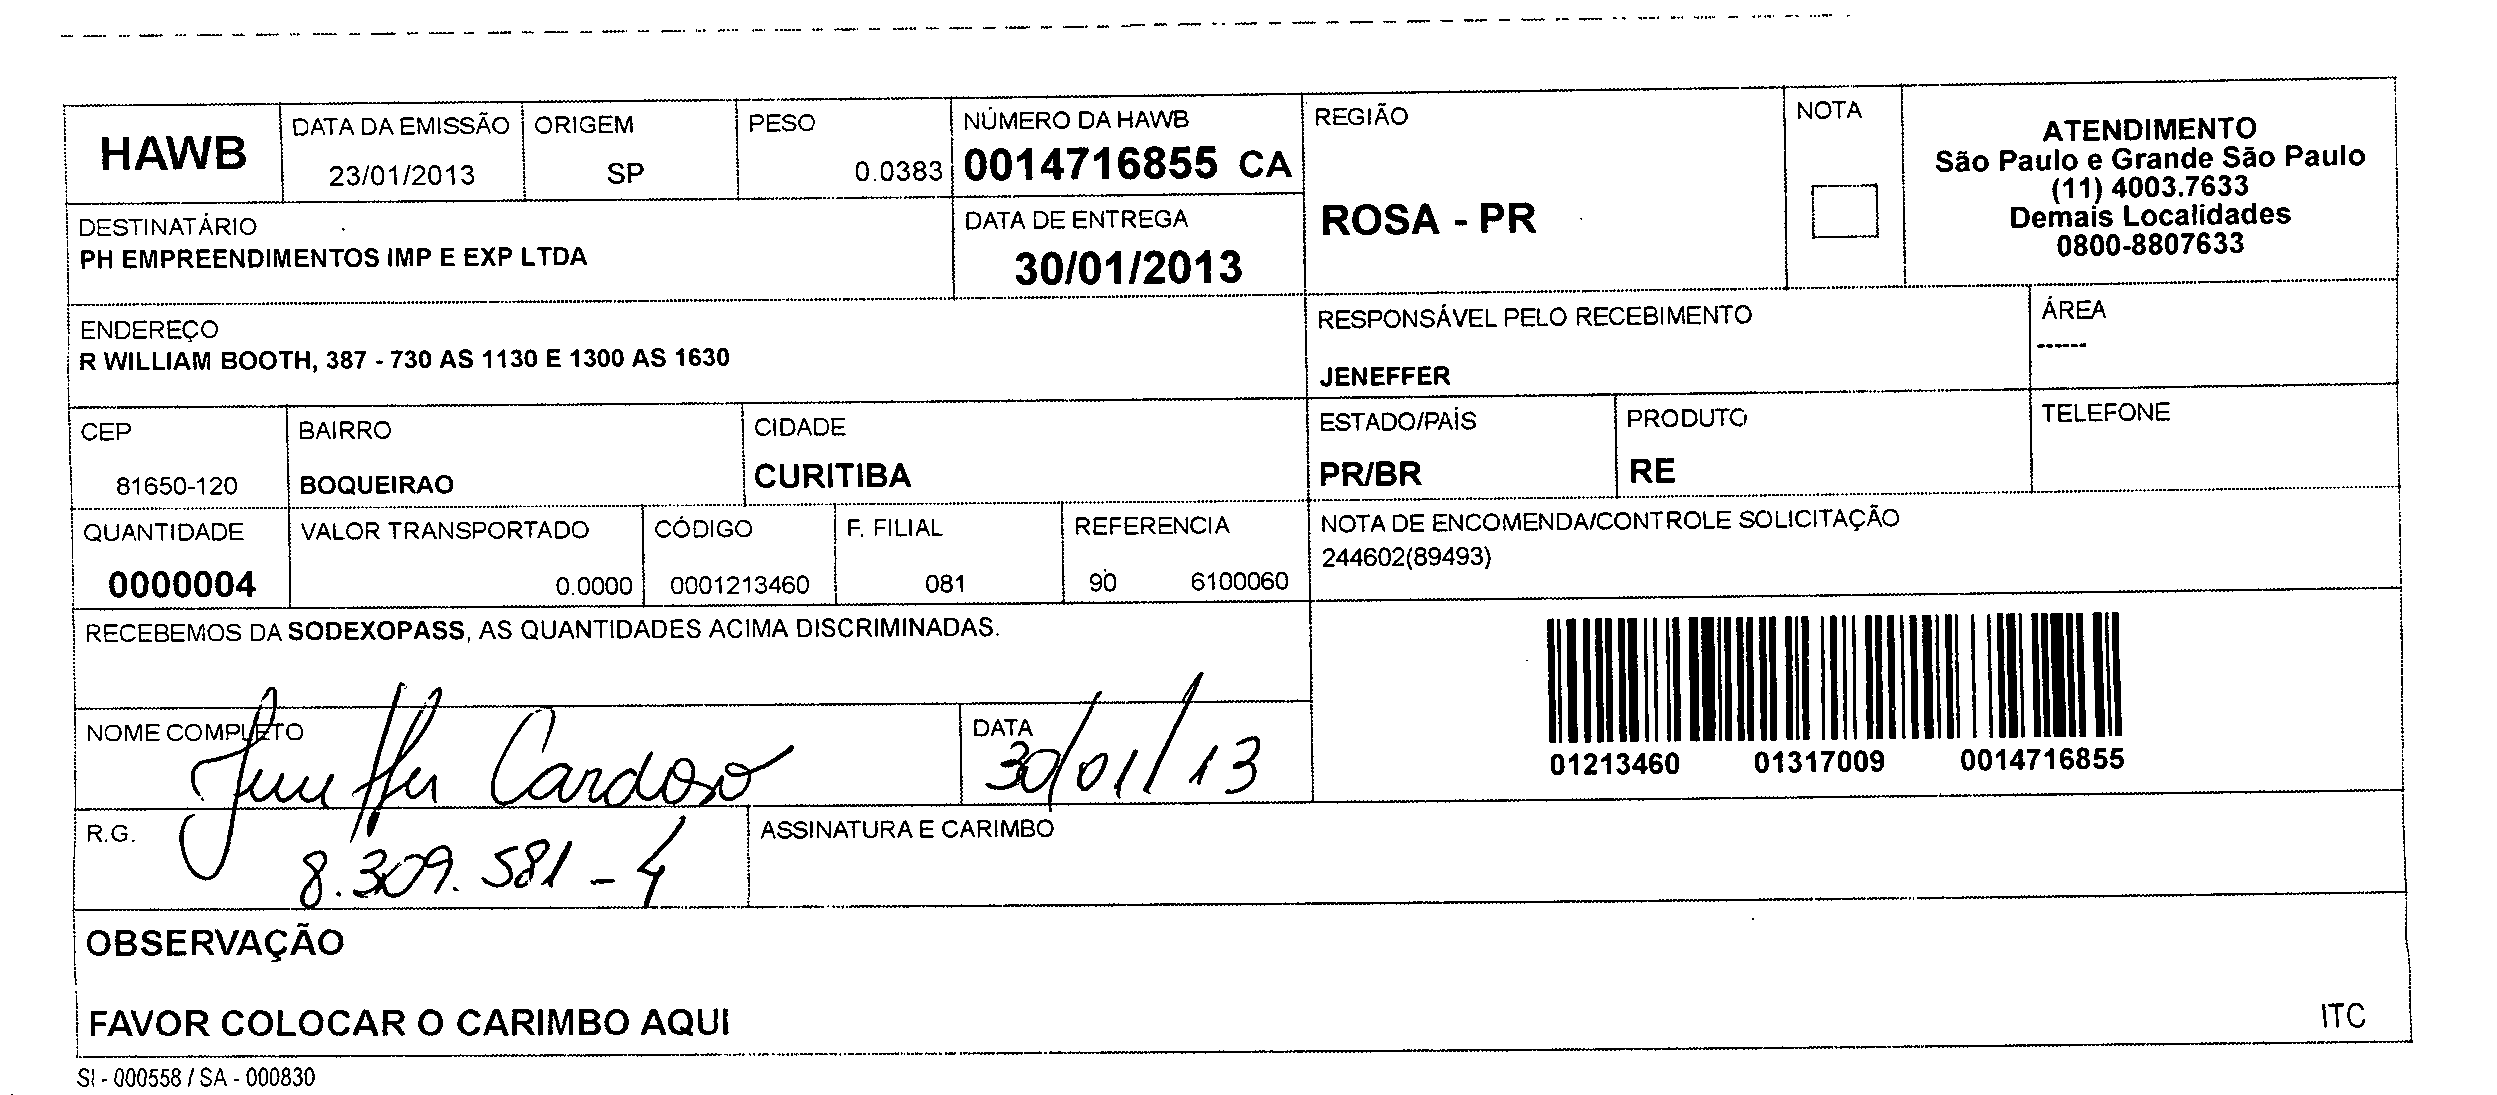 HAWB
DATA DA EMISSÃO
23/01/2013
ORIGEM
SP
PESO
0.0383
NÚMERO DA HAWB
0014716855 CA
REGIÃO
ROSA - PR
NOTA
ATENDIMENTO
São Paulo e Grande São Paulo
(11) 4003.7633
Demais Localidades
0800-8807633
DESTINATÁRIO
PH EMPREENDIMENTOS IMP E EXP LTDA
DATA DE ENTREGA
30/01/2013
ENDEREÇO
R WILLIAM BOOTH, 387 - 730 AS 1130 E 1300 AS 1630
RESPONSÁVEL PELO RECEBIMENTO
JENEFFER
ÁREA
------
CEP
81650-120
BAIRRO
BOQUEIRAO
CIDADE
CURITIBA
ESTADO/PAÍS
PR/BR
PRODUTO
RE
TELEFONE
QUANTIDADE
0000004
VALOR TRANSPORTADO
0.0000
CÓDIGO
0001213460
F. FILIAL
081
REFERENCIA
90 6100060
NOTA DE ENCOMENDA/CONTROLE SOLICITAÇÃO
244602(89493)
RECEBEMOS DA SODEXOPASS, AS QUANTIDADES ACIMA DISCRIMINADAS.
01213460 01317009 0014716855
NOME COMPLETO
Jeneffer Cardoso
DATA
30/01/13
R.G.
8.309.581-4
ASSINATURA E CARIMBO
OBSERVAÇÃO
FAVOR COLOCAR O CARIMBO AQUI
ITC
SI - 000558 / SA - 000830